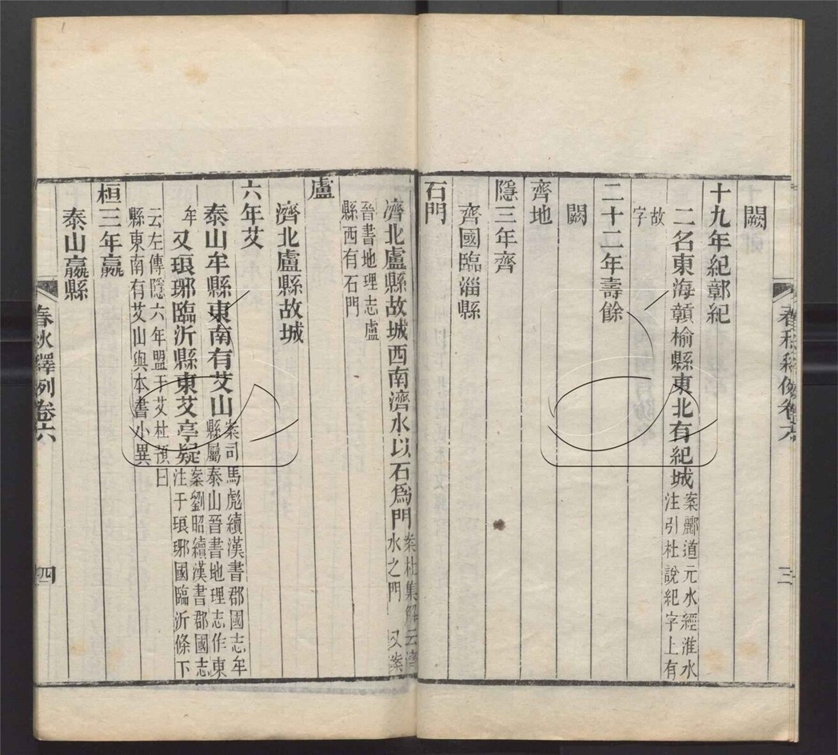 闕
十九年紀鄣紀
二名東海贛榆縣東北有紀城案酈道元水經淮水注引杜說紀字上有
故字
二十二年壽餘
闕
齊地
隱三年齊
齊國臨淄縣
石門
濟北盧縣故城西南濟水以石爲門案杜集解云濟水之門 又案
晉書地理志盧縣西有石門
盧
濟北盧縣故城
六年艾
泰山牟縣東南有艾山案司馬彪續漢書郡國志牟縣屬泰山晉書地理志作東
牟又琅邪臨沂縣東艾亭疑案劉昭續漢書郡國志注于琅邪國臨沂條下
云左傳隱六年盟于艾杜預曰縣東南有艾山與本書小異
桓三年嬴
泰山嬴縣
春秋釋例卷六
三
春秋釋例卷六
四